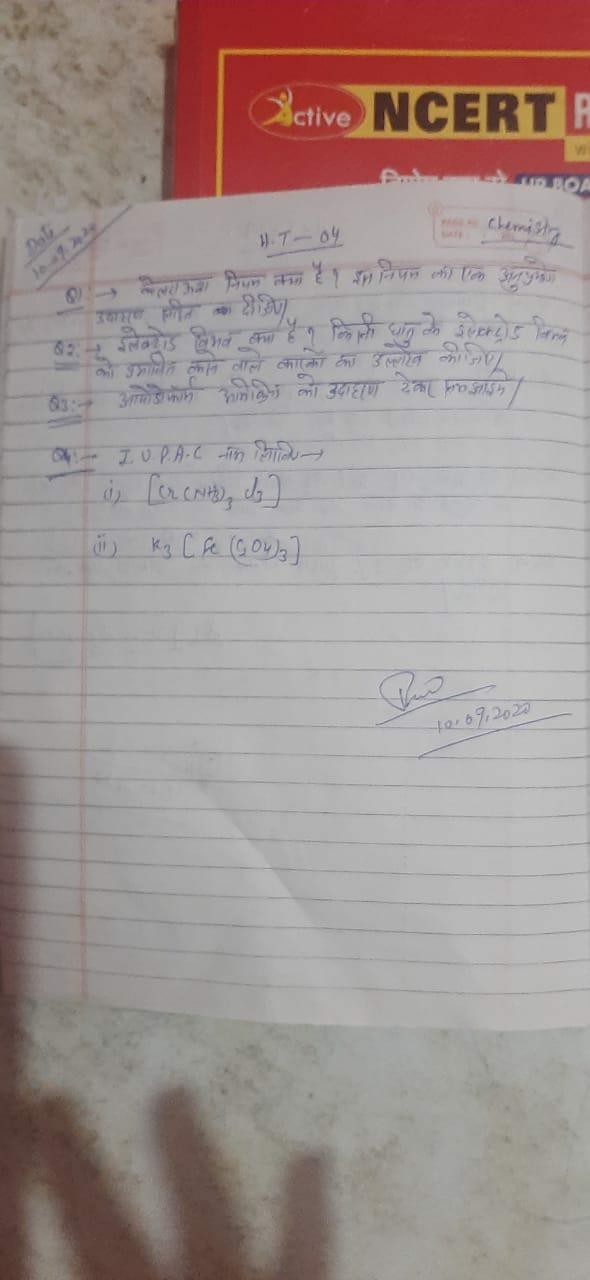 Active NCERT
UP BOA
Date
10.09.2020
H.T-04
PAGE NO.
DATE:
Chemistry
Q1:→ कोलराऊश नियम क्या है? इस नियम का एक अनुप्रयोग
उदाहरण सहित का दीजिए।
Q2:→ इलेक्ट्रोड विभव क्या है? किसी धातु के इलेक्ट्रोड विभव
को प्रभावित करने वाले कारकों का उल्लेख कीजिए।
Q3:→ आयोडोफॉर्म अभिक्रिया को उदाहरण देकर समझाइये।
Q4:→ I.U.P.A.C नाम लिखिए→
(i) [Cr(NH3)3 Cl3]
(ii) K3[Fe(C2O4)3]
10.09.2020